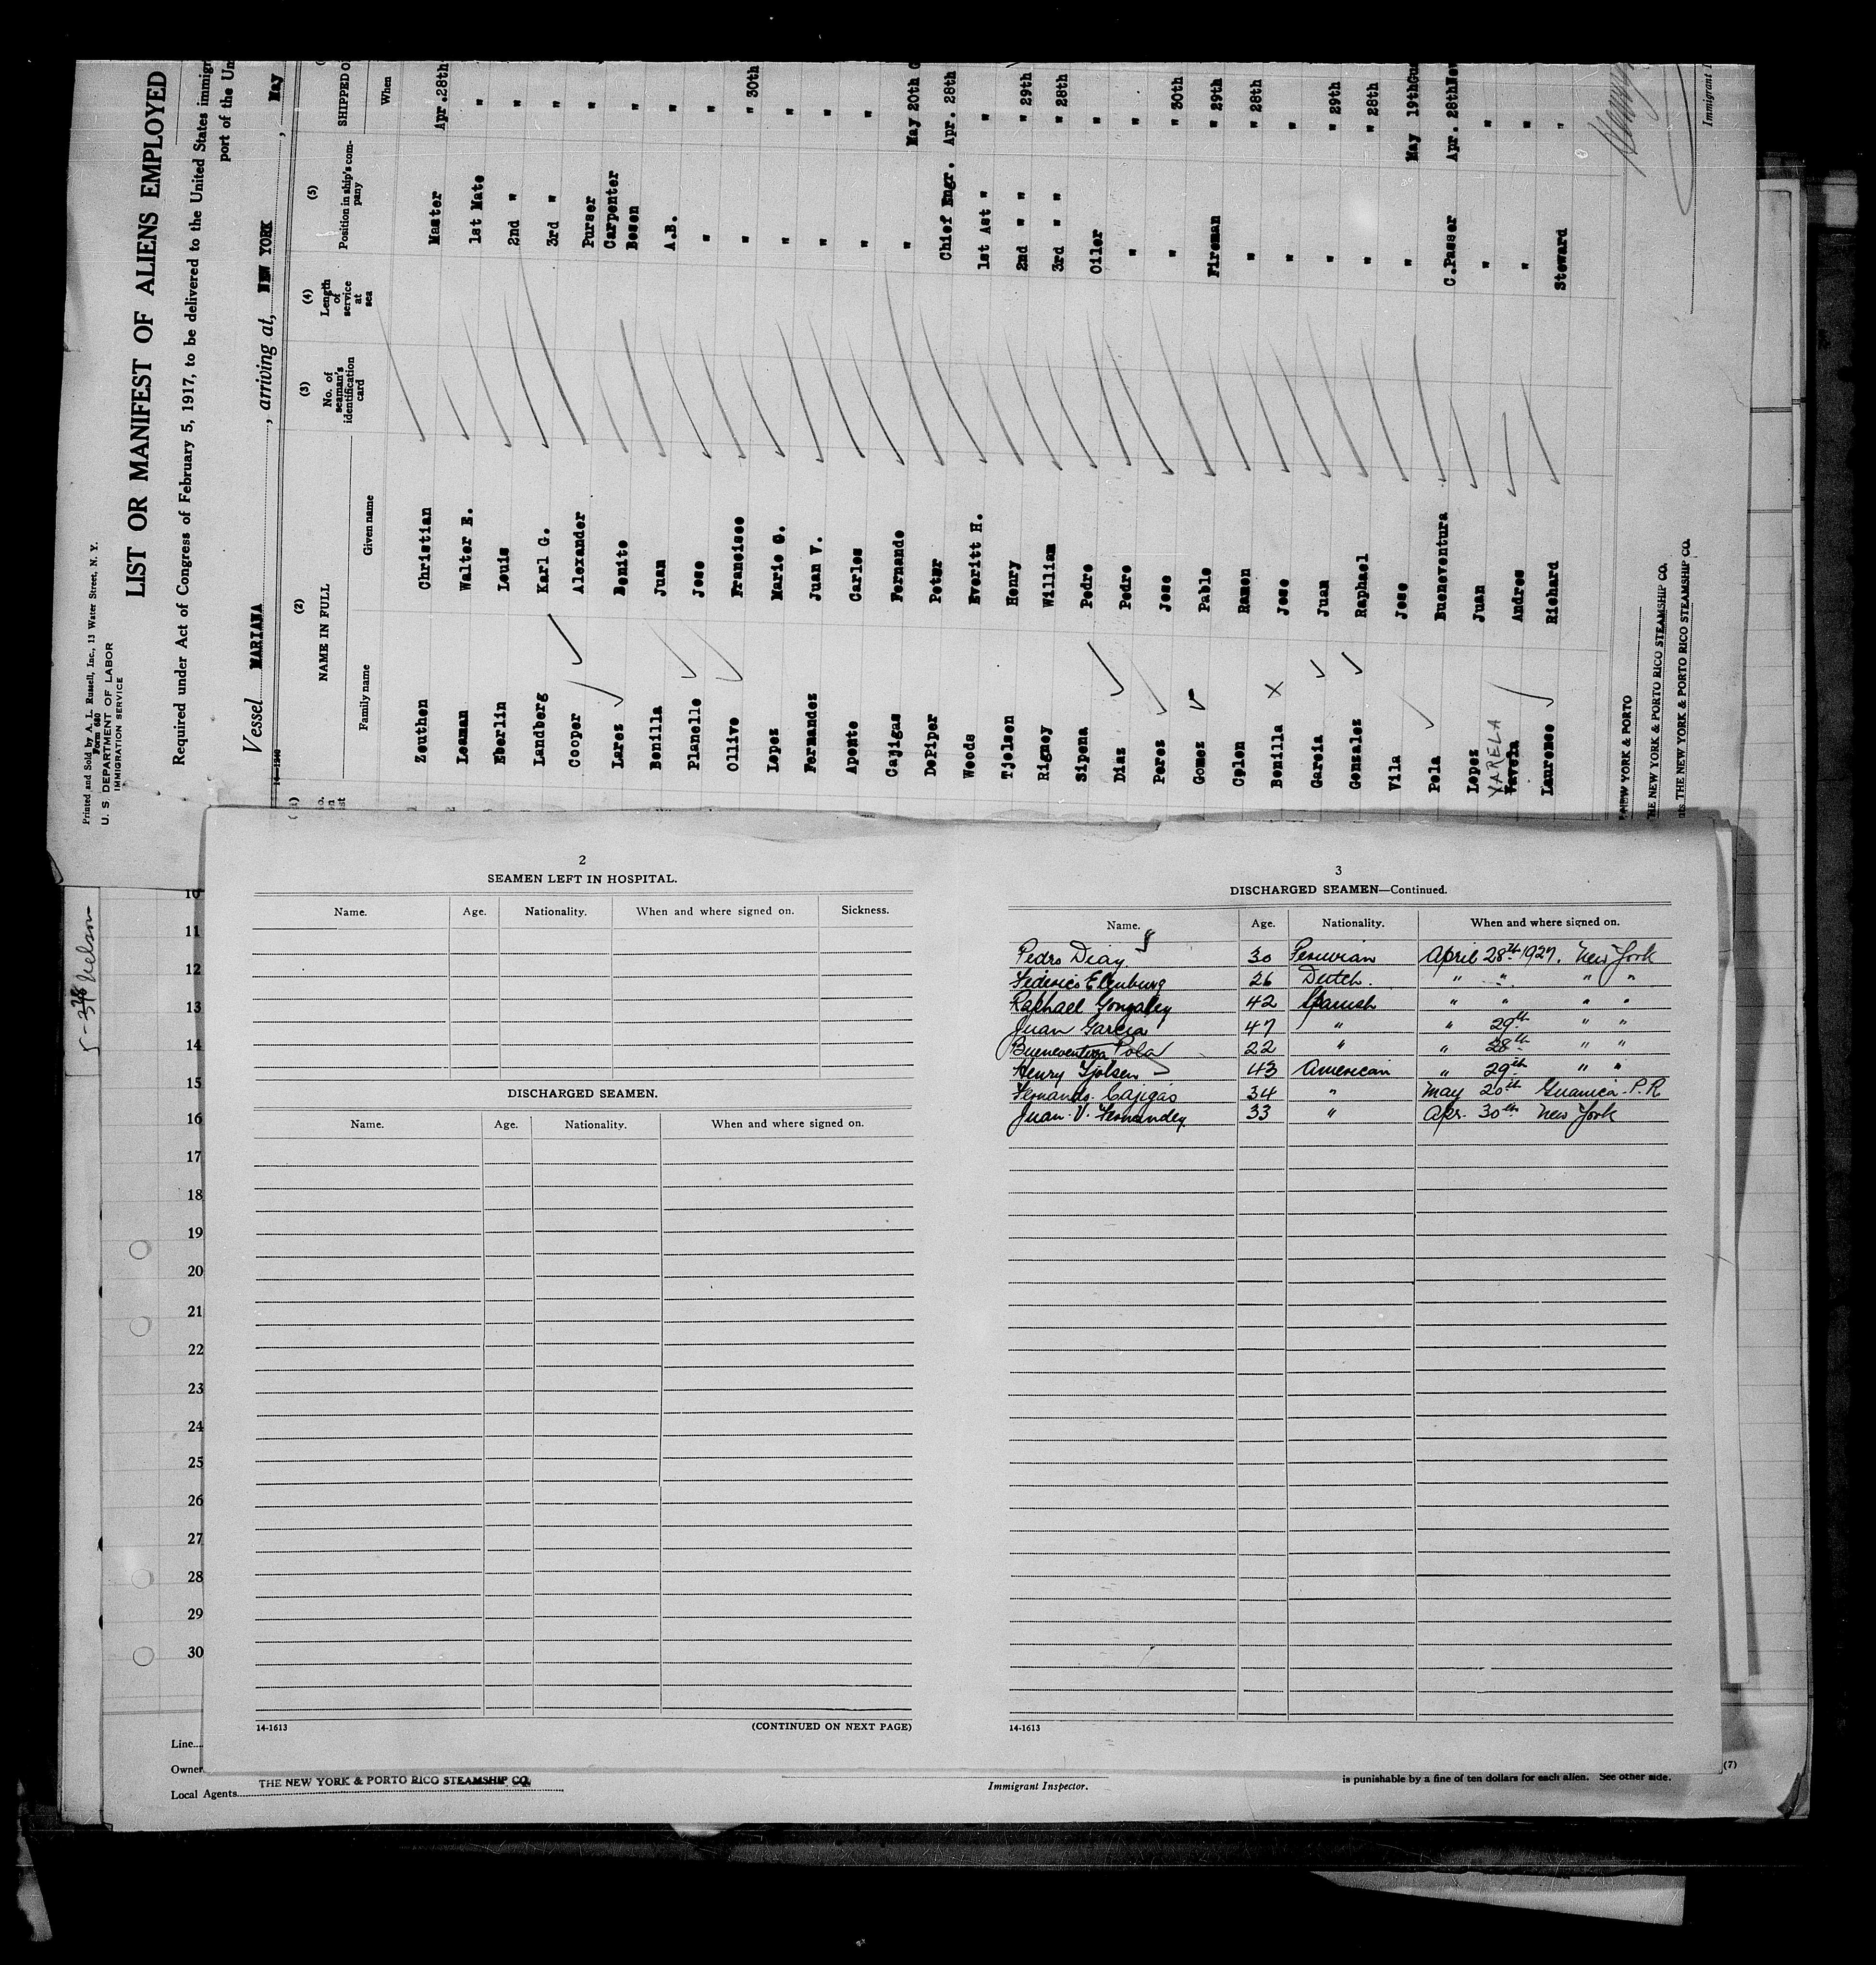 Printed and Sold by A. L. Russell, Inc., 13 Water Street, N. Y.
Form 680
U. S. DEPARTMENT OF LABOR
IMMIGRATION SERVICE
LIST OR MANIFEST OF ALIENS EMPLOYED
Required under Act of Congress of February 5, 1917, to be delivered to the United States immigr
port of the Un
Vessel MARIANA, arriving at, NEW YORK, May
(2) (3) (4) (5)
NAME IN FULL No. of seaman's identification card Length of service at sea Position in ship's company SHIPPED O
Family name Given name When
Zeuthen Christian Master Apr.28th
Leaman Walter E. 1st Mate "
Eberlin Louis 2nd " "
Landberg Karl G. 3rd " "
Cooper Alexander Purser "
Lares Benito Carpenter "
Bonilla Juan Bosen "
Planelle Jose A.B. "
Ollive Francisco " " 30th
Lopez Mario G. " "
Fernandez Juan V. " "
Aponte Carlos " "
Cajigas Fernando " May 20th G
DePiper Peter " Apr. 28th
Woods Everitt H. Chief Engr. "
Tjolsen Henry 1st Ast " " 29th
Rigney William 2nd " " " 28th
Sipena Pedro 3rd " " "
Diaz Pedro Oiler "
Perez Jose " " 30th
Gomez Pablo " " 29th
Colon Ramon Fireman " 28th
Bonilla Jose " "
Garcia Juan " " 29th
Gonzalez Raphael " " 28th
Vila Jose " May 19th Gu
Pola Bueneventura " Apr. 28th New
Lopez Juan C.Passer "
VARELA
Andres " "
Laurence Richard " "
Steward
NEW YORK & PORTO
HE NEW YORK & PORTO RICO STEAMSHIP CO.
THE NEW YORK & PORTO RICO STEAMSHIP CO.
Immigrant I
10
11
12
13
14
15
16
17
18
19
20
21
22
23
24
25
26
27
28
29
30
2
SEAMEN LEFT IN HOSPITAL.
Name. Age. Nationality. When and where signed on. Sickness.
DISCHARGED SEAMEN.
Name. Age. Nationality. When and where signed on.
14-1613 (CONTINUED ON NEXT PAGE)
3
DISCHARGED SEAMEN—Continued.
Name. Age. Nationality. When and where signed on.
Pedro Diaz 30 Peruvian April 28th 1927. New York
Federico Elenburg 26 Dutch. " " " "
Raphael Gonzalez 42 Spanish " " " "
Juan Garcia 47 " " 29th " "
Bueneventura Pola 22 " " 28th " "
Henry Tjolsen 43 American " 29th " "
Fernando Cajigas 34 " May 20th Guanica P.R
Juan V. Fernandez 33 " Apr. 30th New York
14-1613
Line
Owner
Local Agents THE NEW YORK & PORTO RICO STEAMSHIP CO.
Immigrant Inspector.
is punishable by a fine of ten dollars for each alien. See other side.
(7)